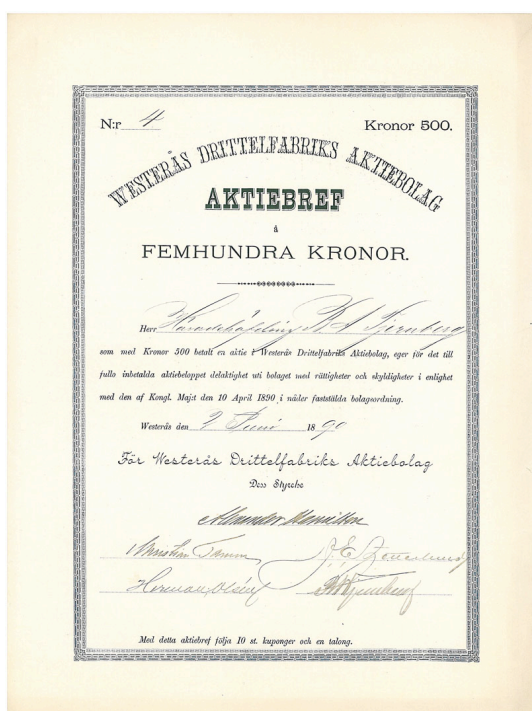 N:r 4 Kronor 500.
WESTERÅS DRITTELFABRIKS AKTIEBOLAG
AKTIEBREF
á
FEMHUNDRA KRONOR.
Herr Häradshöfding
som med Kronor 500 betalt en aktie i Westerås Drittelfabriks Aktiebolag, eger för det till
fullo inbetalda aktiebeloppet delaktighet uti bolaget med rättigheter och skyldigheter i enlighet
med den af Kongl. Maj:t den 10 April 1890 i nåder faststälda bolagsordning.
Westerås den 2 Juni 1890
För Westerås Drittelfabriks Aktiebolag
Dess Styrelse
Alexander Hamilton
Christian Tamm
Herman Olsén
Med detta aktiebref följa 10 st. kuponger och en talong.